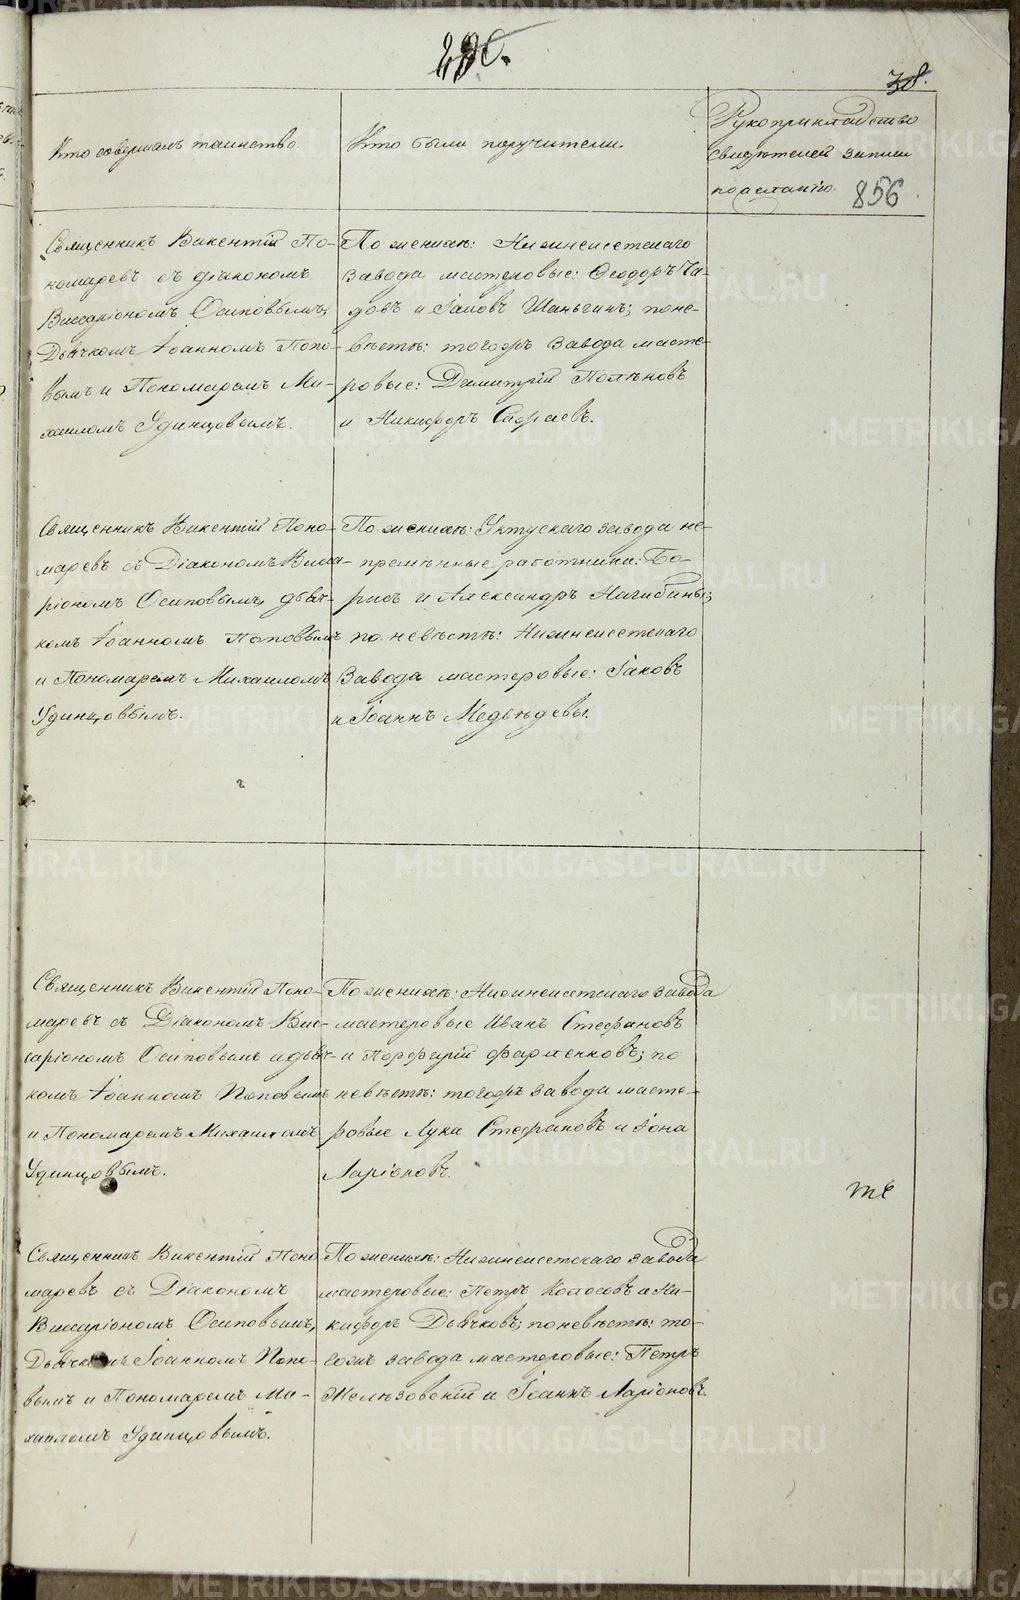 38.
Кто совершалъ таинство.
Кто были поручители.
Рукоприкладство
свидѣтелей записи
по желанію.
856
Священникъ Викентій По-
номаревъ съ діакономъ
Виссаріономъ Осиповымъ,
Дьячкомъ Іоанномъ Попо-
вымъ и Пономаремъ Ми-
хаиломъ Удинцовымъ.
По женихѣ: Нижнеисетскаго
Завода мастеровые: Ѳеодоръ
и Іаковъ Шаньгинъ; по не-
вѣстѣ: тогожъ Завода масте-
ровые: Димитрій Полѣновъ
и Никифоръ
Священникъ Викентій Поно-
маревъ съ Діакономъ Висса-
ріономъ Осиповымъ, дьяч-
комъ Іоанномъ Поповымъ
и Пономаремъ Михаиломъ
Удинцовымъ.
По женихѣ: Уктускаго завода не-
премѣнные работники: Бо-
рисъ и Александръ Нагибины;
по невѣстѣ: Нижнеисетскаго
Завода мастеровые: Іаковъ
и Іоаннъ Медвѣдевы.
Священникъ Викентій Поно-
маревъ съ Діакономъ Вис-
саріономъ Осиповымъ и дьяч-
комъ Іоанномъ Поповымъ
и Пономаремъ Михаиломъ
Удинцовымъ.
По женихѣ: Нижнеисетскаго завода
мастеровые Иванъ Стефановъ
и Порфирій по
невѣстѣ: тогожъ завода масте-
ровые Лука Стефановъ и Іона
Ларіоновъ.
Священникъ Викентій Поно-
маревъ съ Діакономъ
Виссаріономъ Осиповымъ,
Дьячкомъ Іоанномъ Попо-
вымъ и Пономаремъ Ми-
хаиломъ Удинцовымъ.
По женихѣ: Нижнеисетскаго завода
мастеровые: Петръ Колосовъ и Ни-
кифоръ Дьячковъ; по невѣстѣ: то-
гожъ завода мастеровые: Петръ
Желѣзовскій и Іоаннъ Ларіоновъ
METRIKI.GASO-URAL.RU